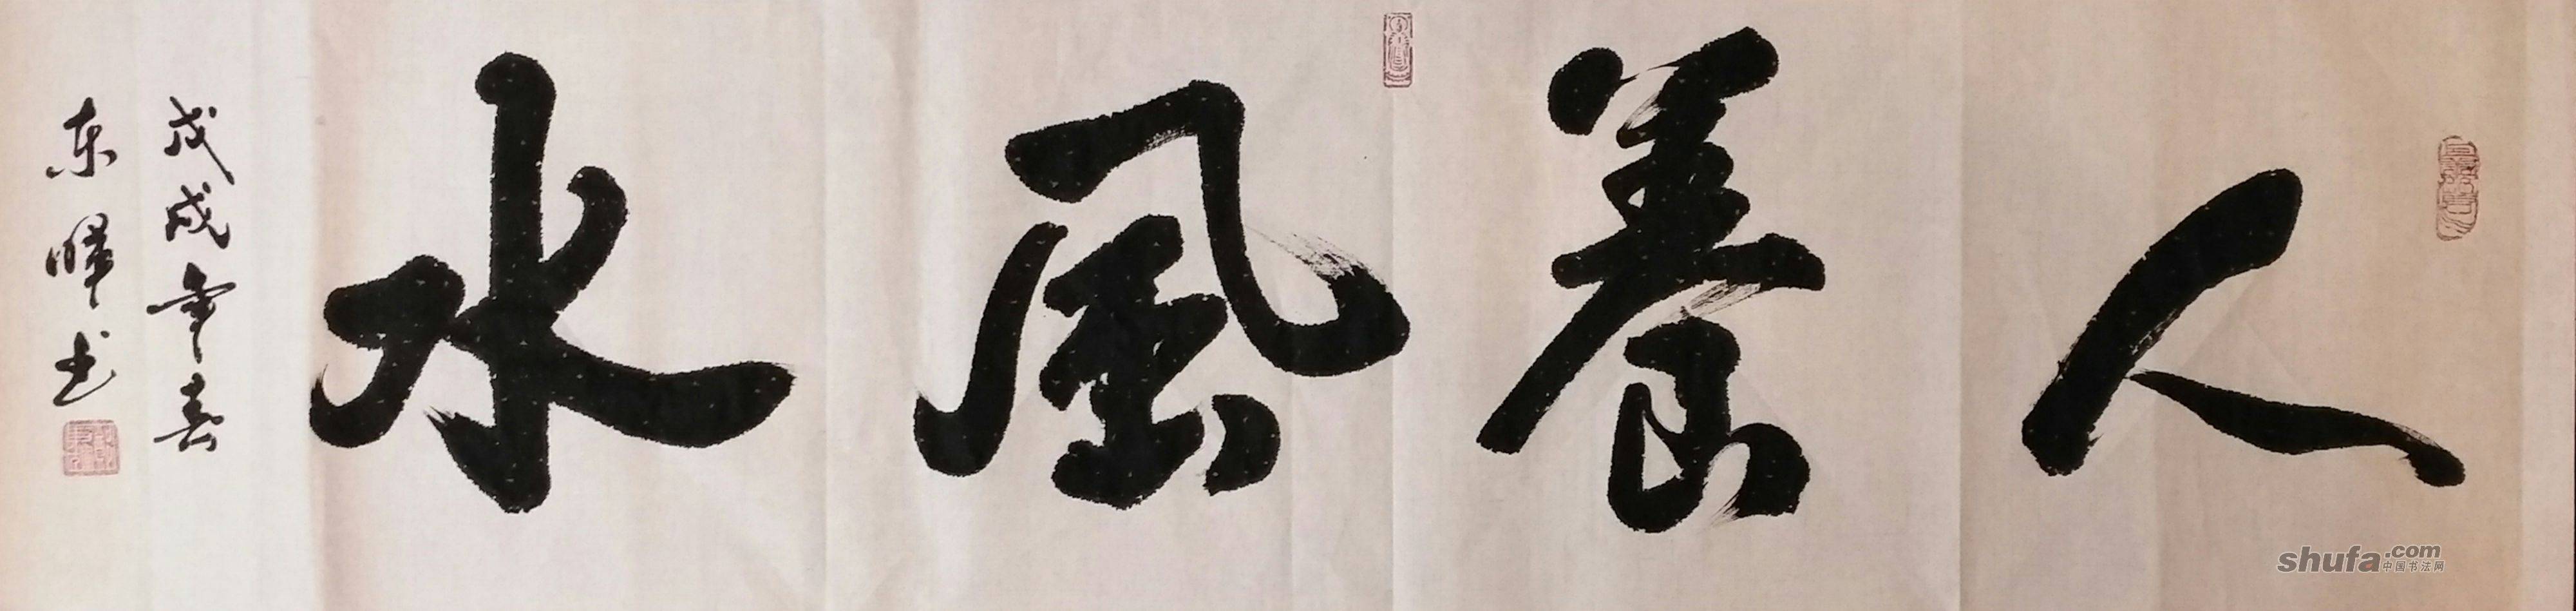 人養風水
戊戌年春
东晖书
shufa.com
中国书法网